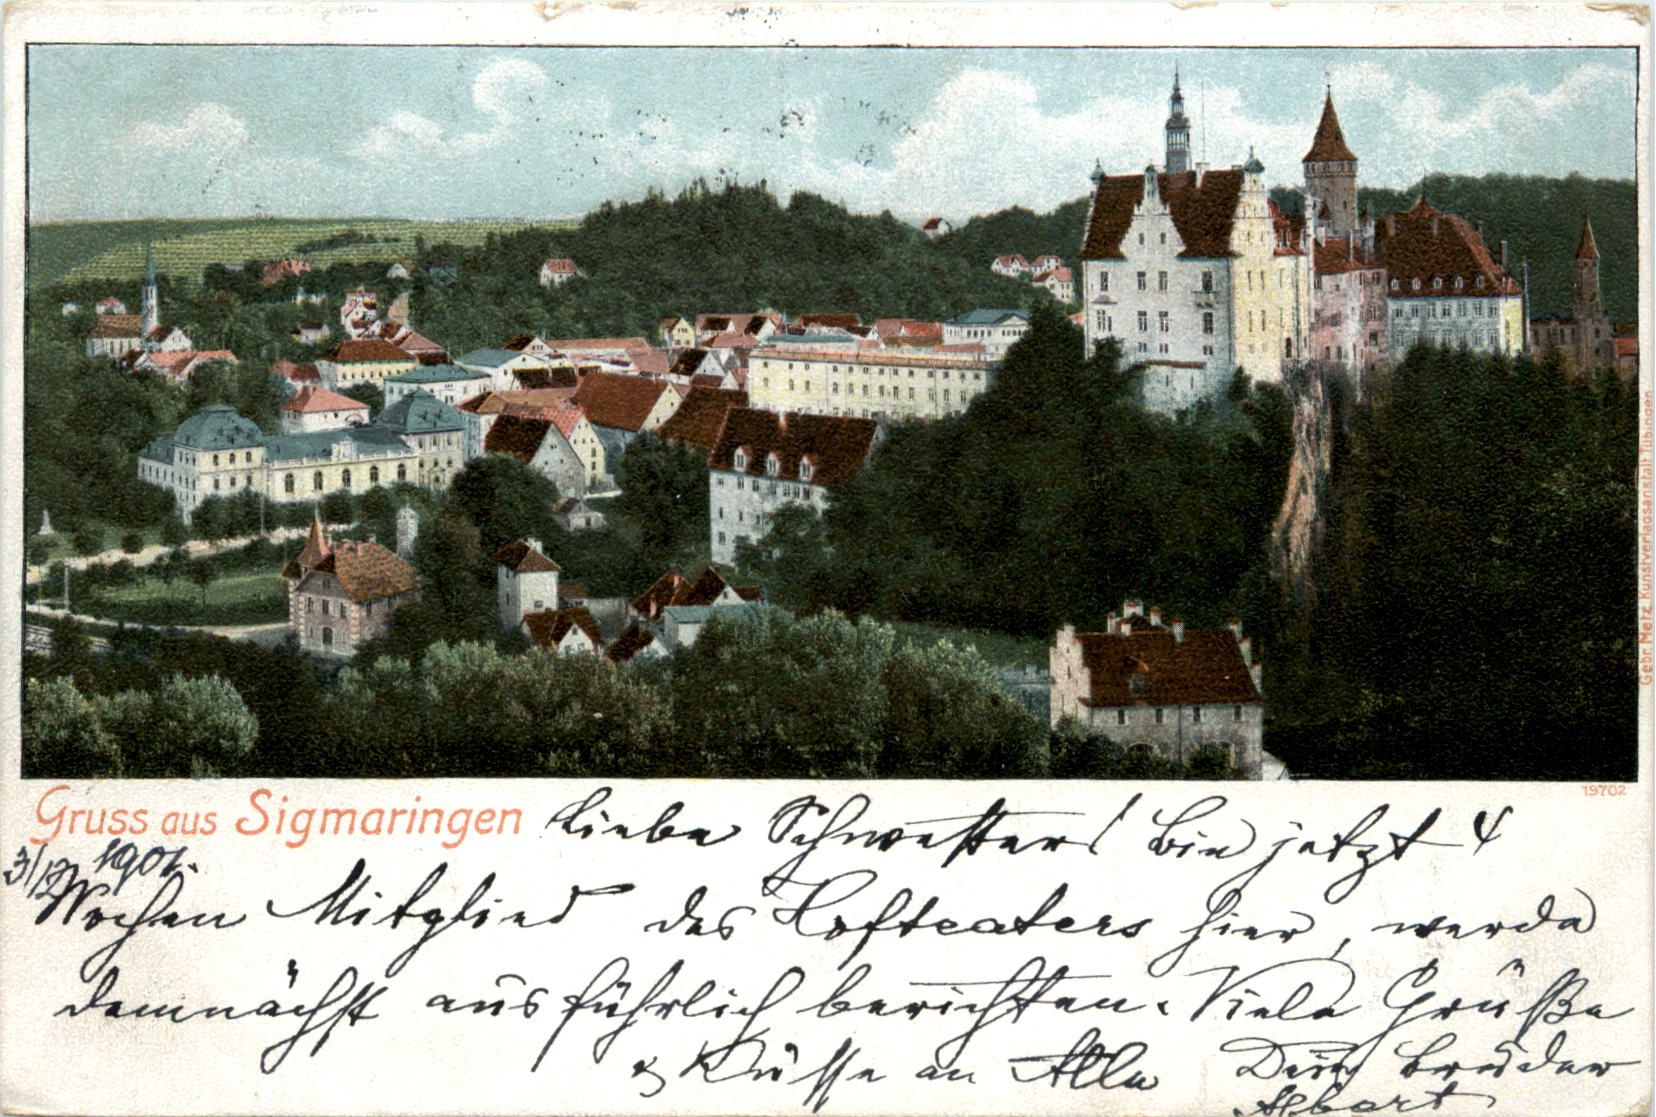 Gruss aus Sigmaringen
Liebe Schwester! Bin jetzt 4
3/12 1901.
Wochen Mitglied des Hofteaters hier, werde
demnächst ausführlich berichten. Viele Grüße
& Küsse an Alle Dein Bruder
Albert
19702
Gebr. Metz Kunstverlagsanstalt Tübingen